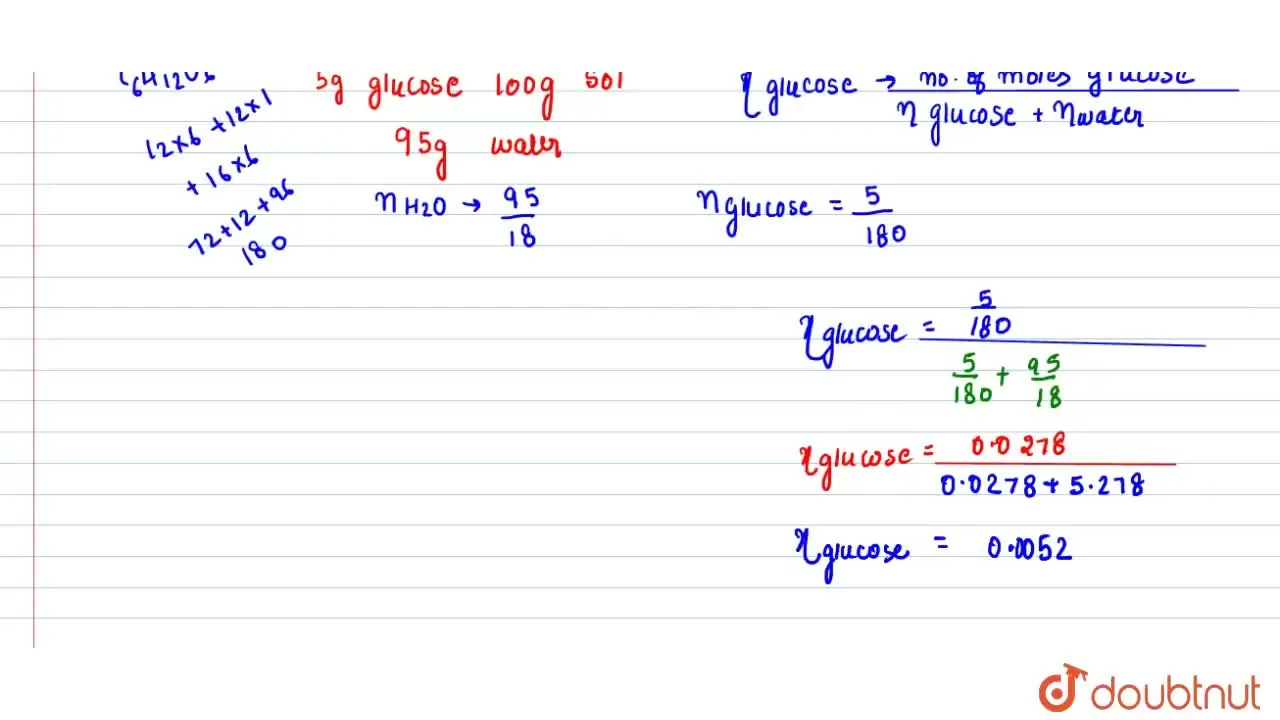 C6H12O6
12×6 +12×1
+ 16×6
72+12+96
180
5g glucose 100g sol
95g water
n H2O → 95/18
χ glucose → no. of moles glucose / n glucose + n water
n glucose = 5/180
χ glucose = 5/180
5/180 + 95/18
χ glucose = 0.0278
0.0278 + 5.278
χ glucose = 0.0052
doubtnut